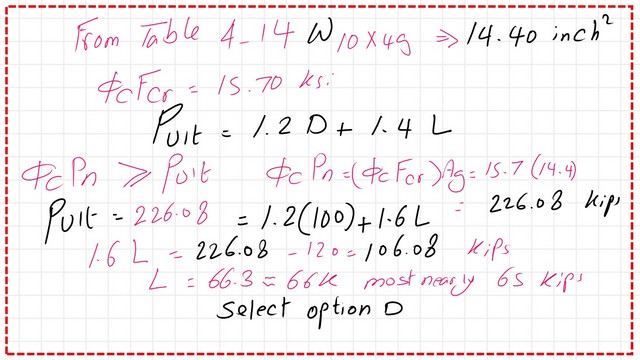 From Table 4-14 W10x49 ⇒ 14.40 inch²
ϕcFcr = 15.70 ksi
Pult = 1.2 D + 1.4 L
ϕcPn ⩾ Pult ϕcPn = (ϕcFcr)Ag = 15.7 (14.4)
Pult = 226.08 = 1.2(100) + 1.6 L = 226.08 kips
1.6 L = 226.08 - 120 = 106.08 kips
L = 66.3 = 66k most nearly 65 kips
Select option D